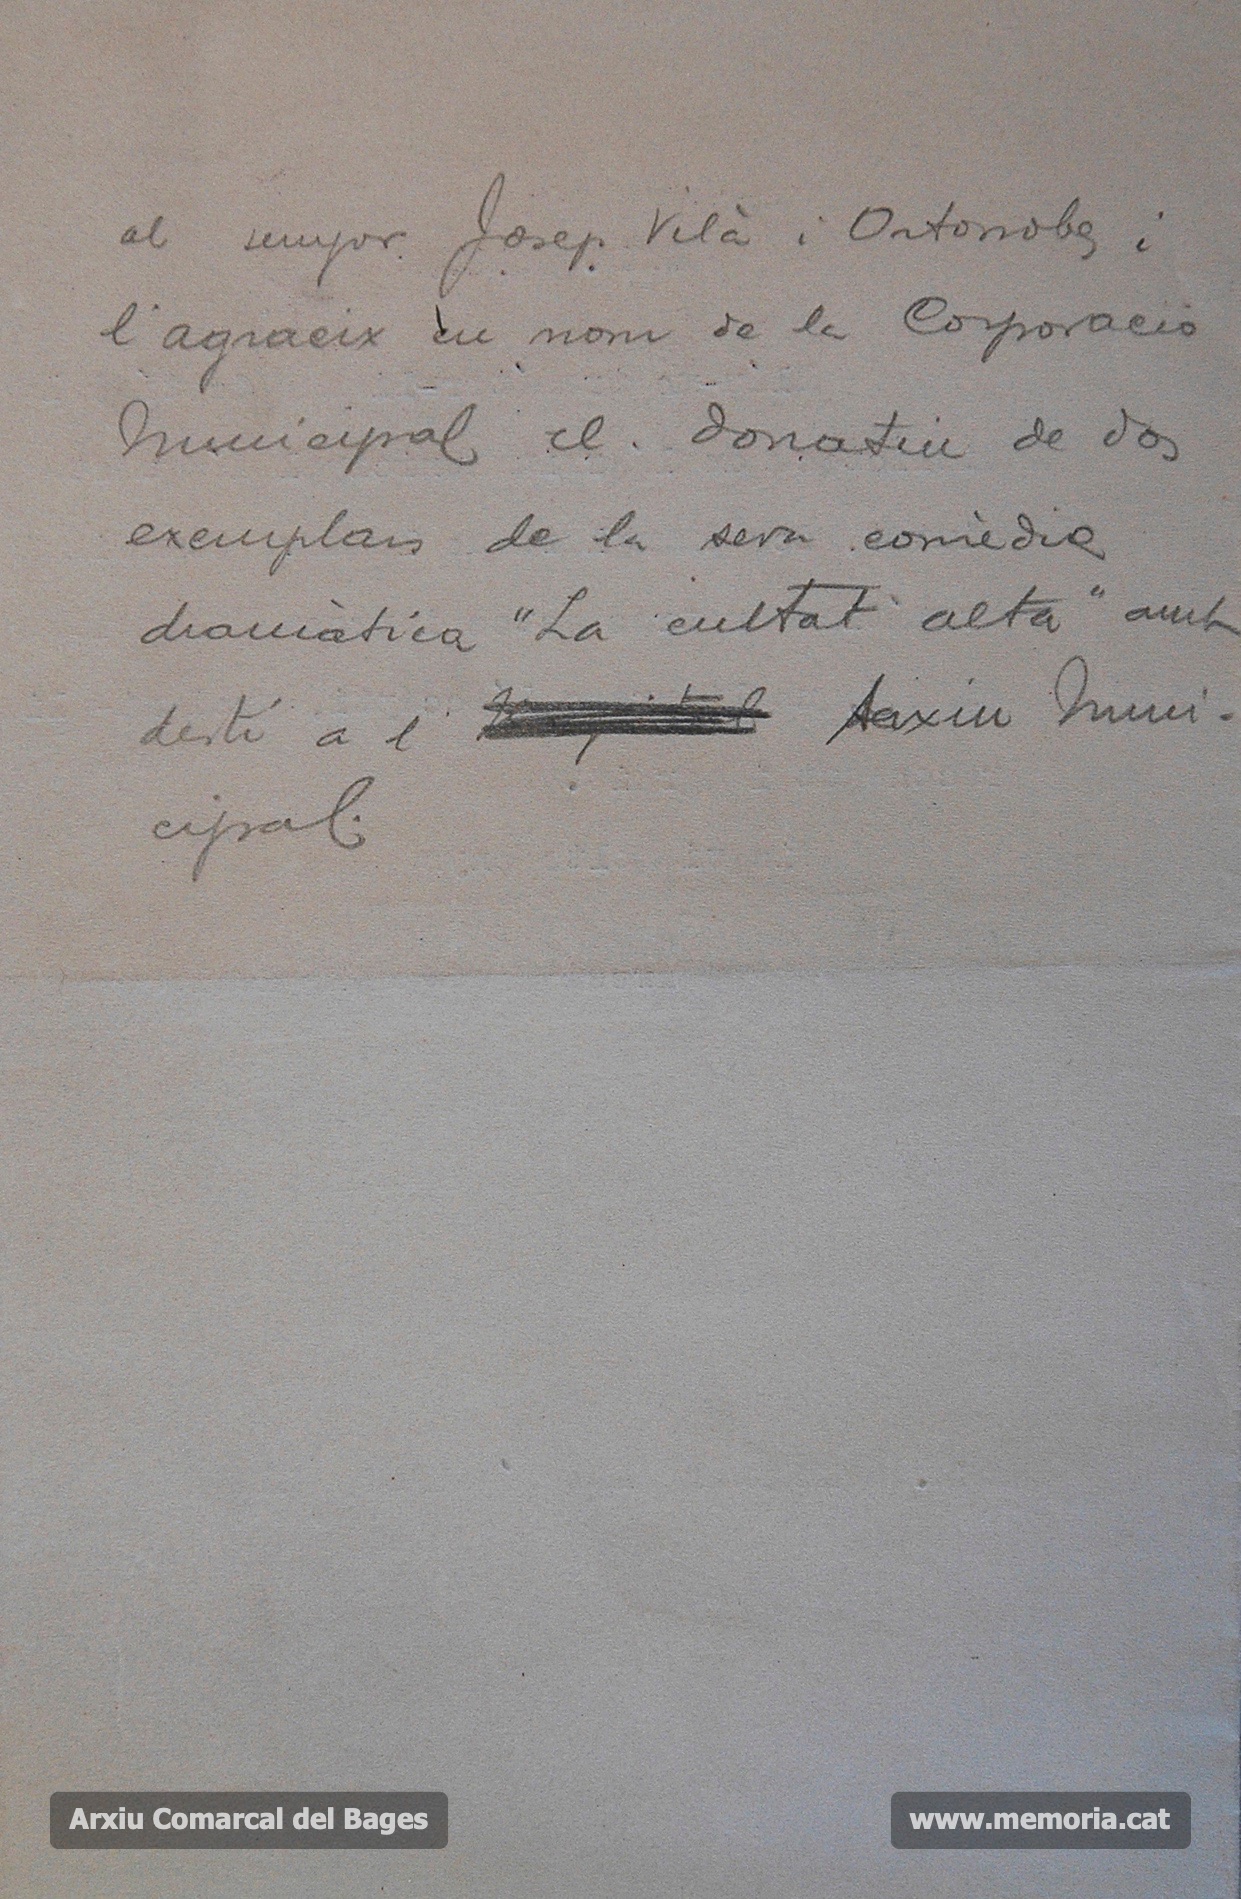 al senyor Josep Vilà i Ortonobes i
l'agraeix en nom de la Corporacio
Municipal el donatiu de dos
exemplars de la seva comèdia
dramàtica "La ciutat alta" amb
destí a l' Arxiu Muni-
cipal.
Arxiu Comarcal del Bages
www.memoria.cat